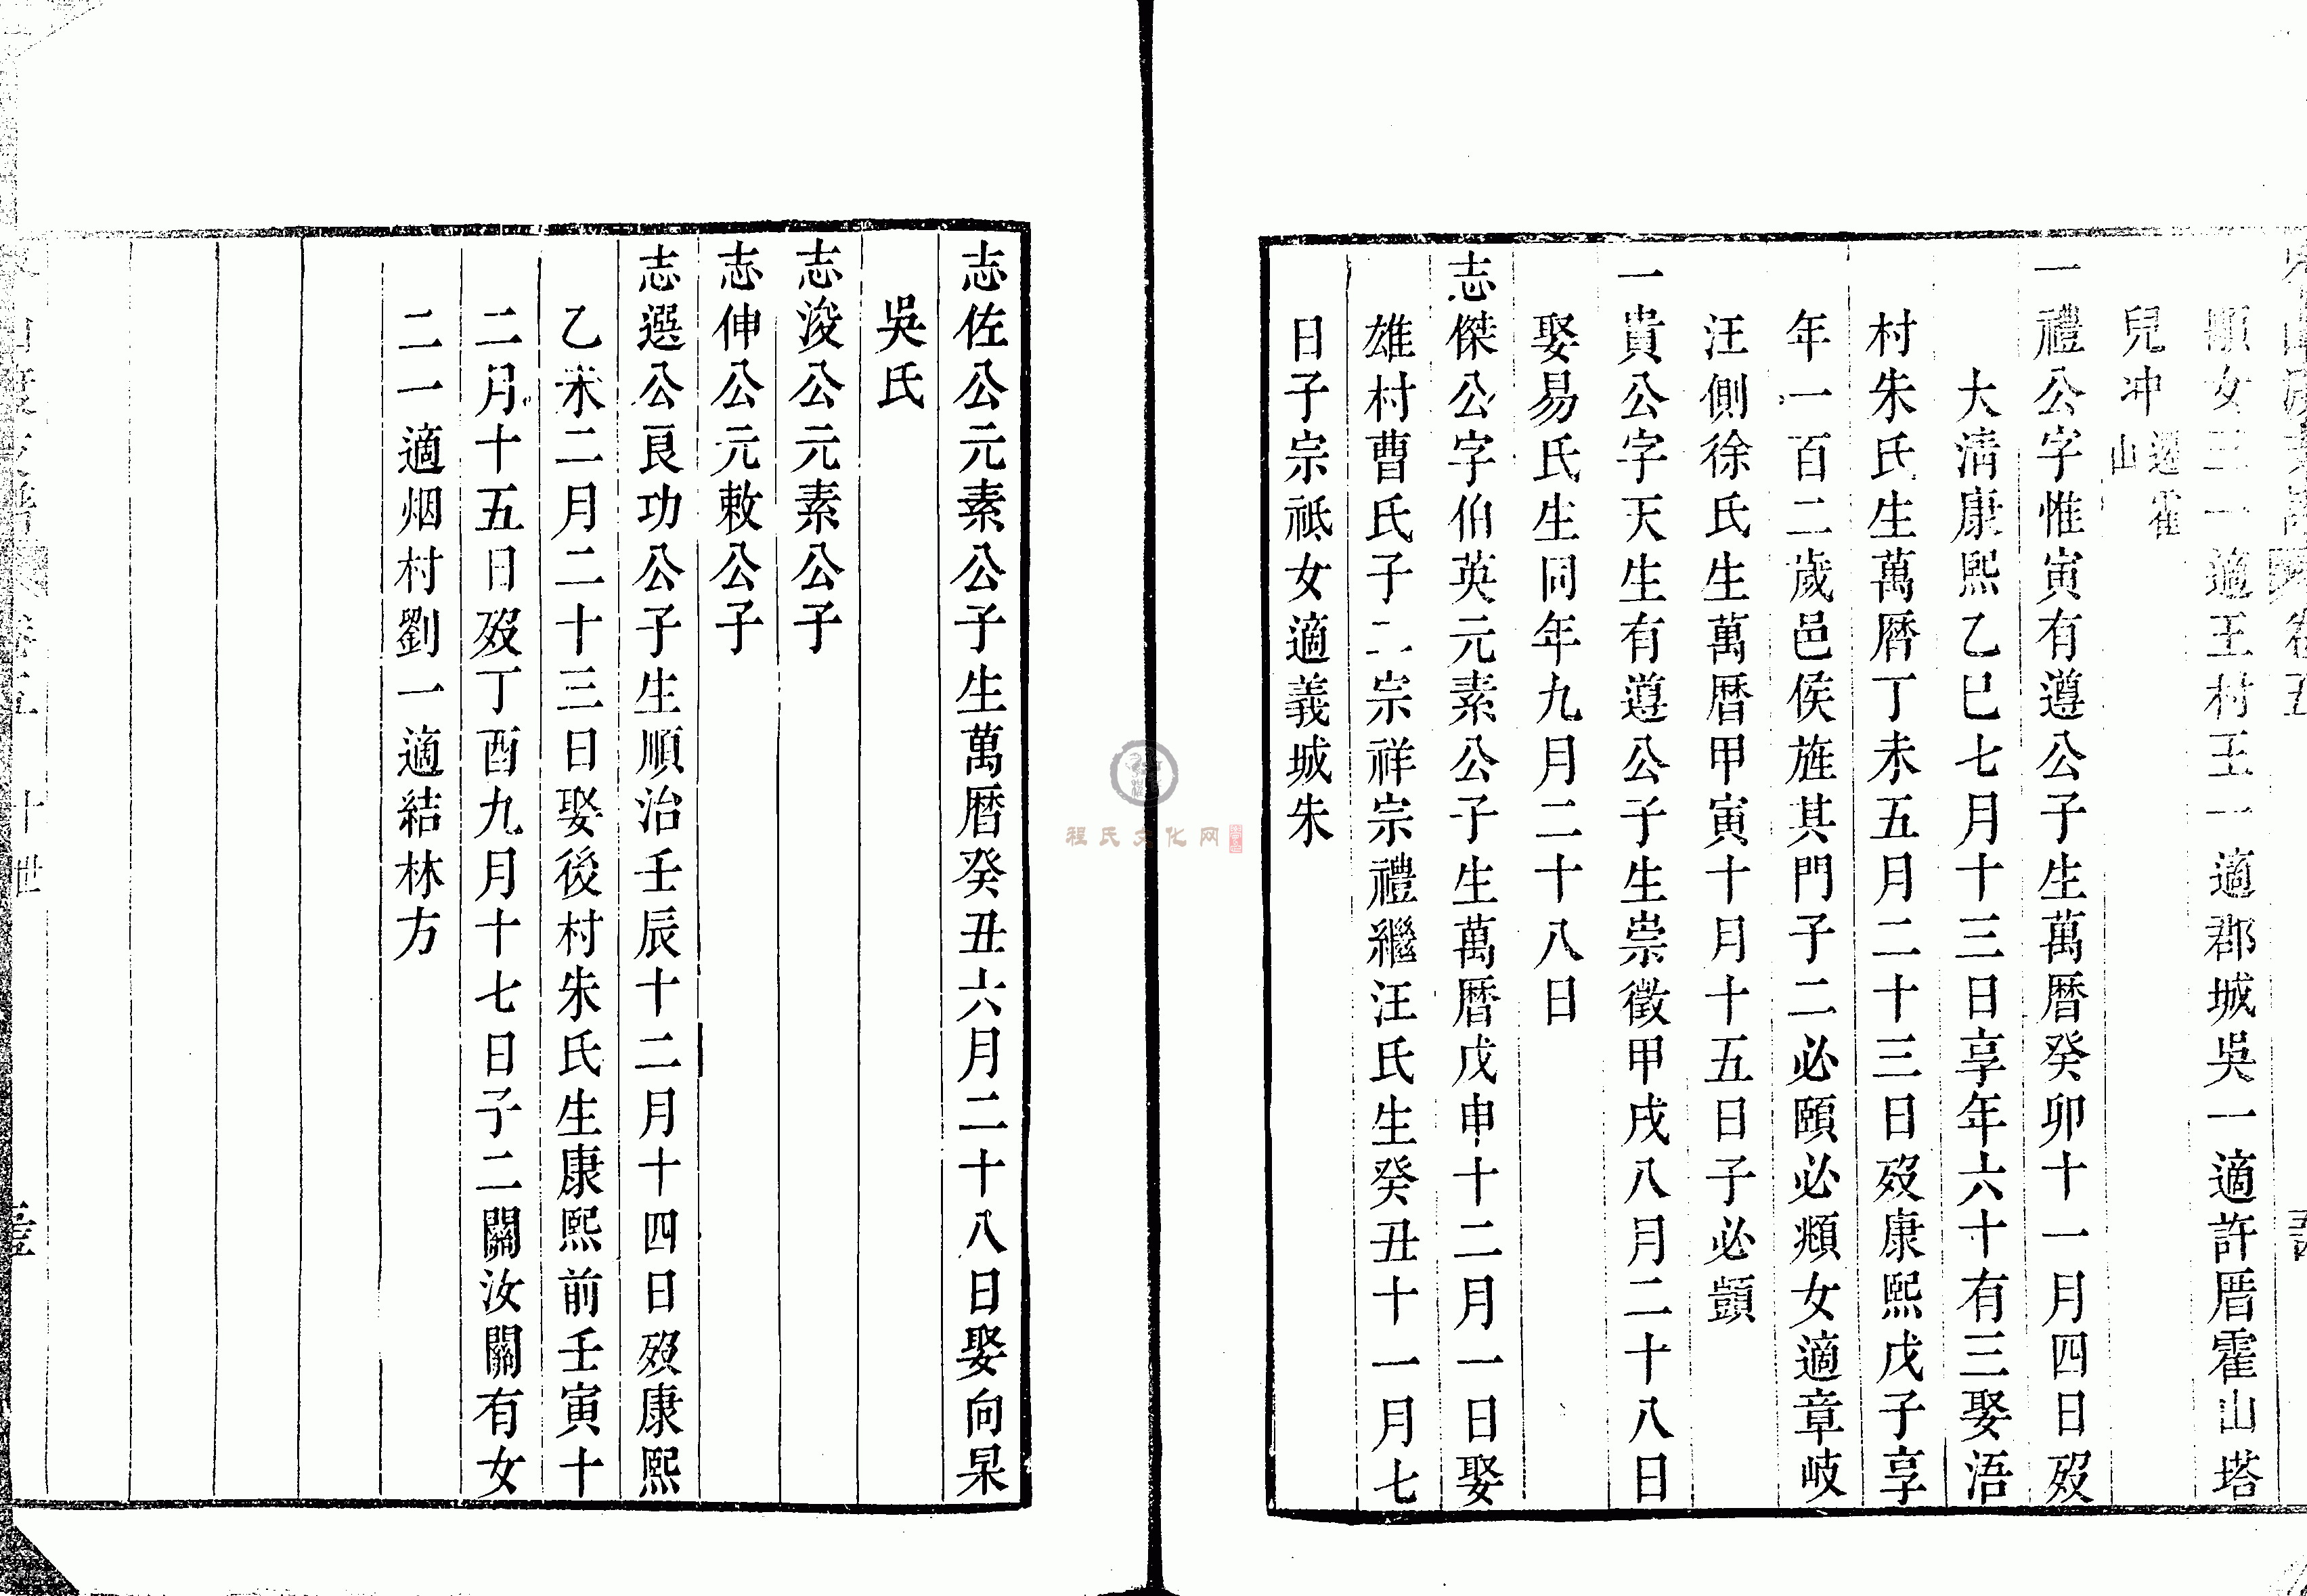 卷五
順女三一適王村王一適郡城吳一適許厝霍山塔
兒冲遷霍山
一禮公字惟寅有遵公子生萬曆癸卯十一月四日歿
大清康熙乙巳七月十三日享年六十有三娶浯
村朱氏生萬曆丁未五月二十三日歿康熙戊子享
年一百二歲邑侯旌其門子二必頤必頫女適章岐
汪側徐氏生萬曆甲寅十月十五日子必顗
一貴公字天生有遵公子生崇徵甲戌八月二十八日
娶易氏生同年九月二十八日
志傑公字伯英元素公子生萬曆戊申十二月一日娶
雄村曹氏子二宗祥宗禮繼汪氏生癸丑十一月七
日子宗祇女適義城朱
志佐公元素公子生萬曆癸丑六月二十八日娶向杲
吳氏
志浚公元素公子
志伸公元敕公子
志選公良功公子生順治壬辰十二月十四日歿康熙
乙未二月二十三日娶後村朱氏生康熙前壬寅十
二月十五日歿丁酉九月十七日子二關汝關有女
二一適烟村劉一適結林方
卷五 十世
程氏文化网